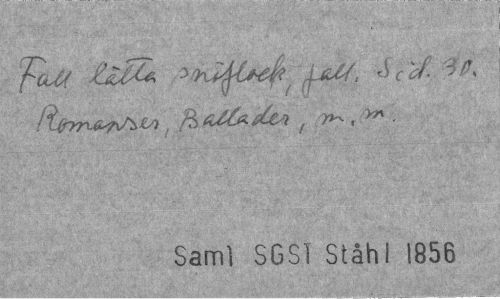 Fall lätta snöflock, fall. Sid. 30.
Romanser, Ballader, m.m.
Saml SGSI Ståhl 1856